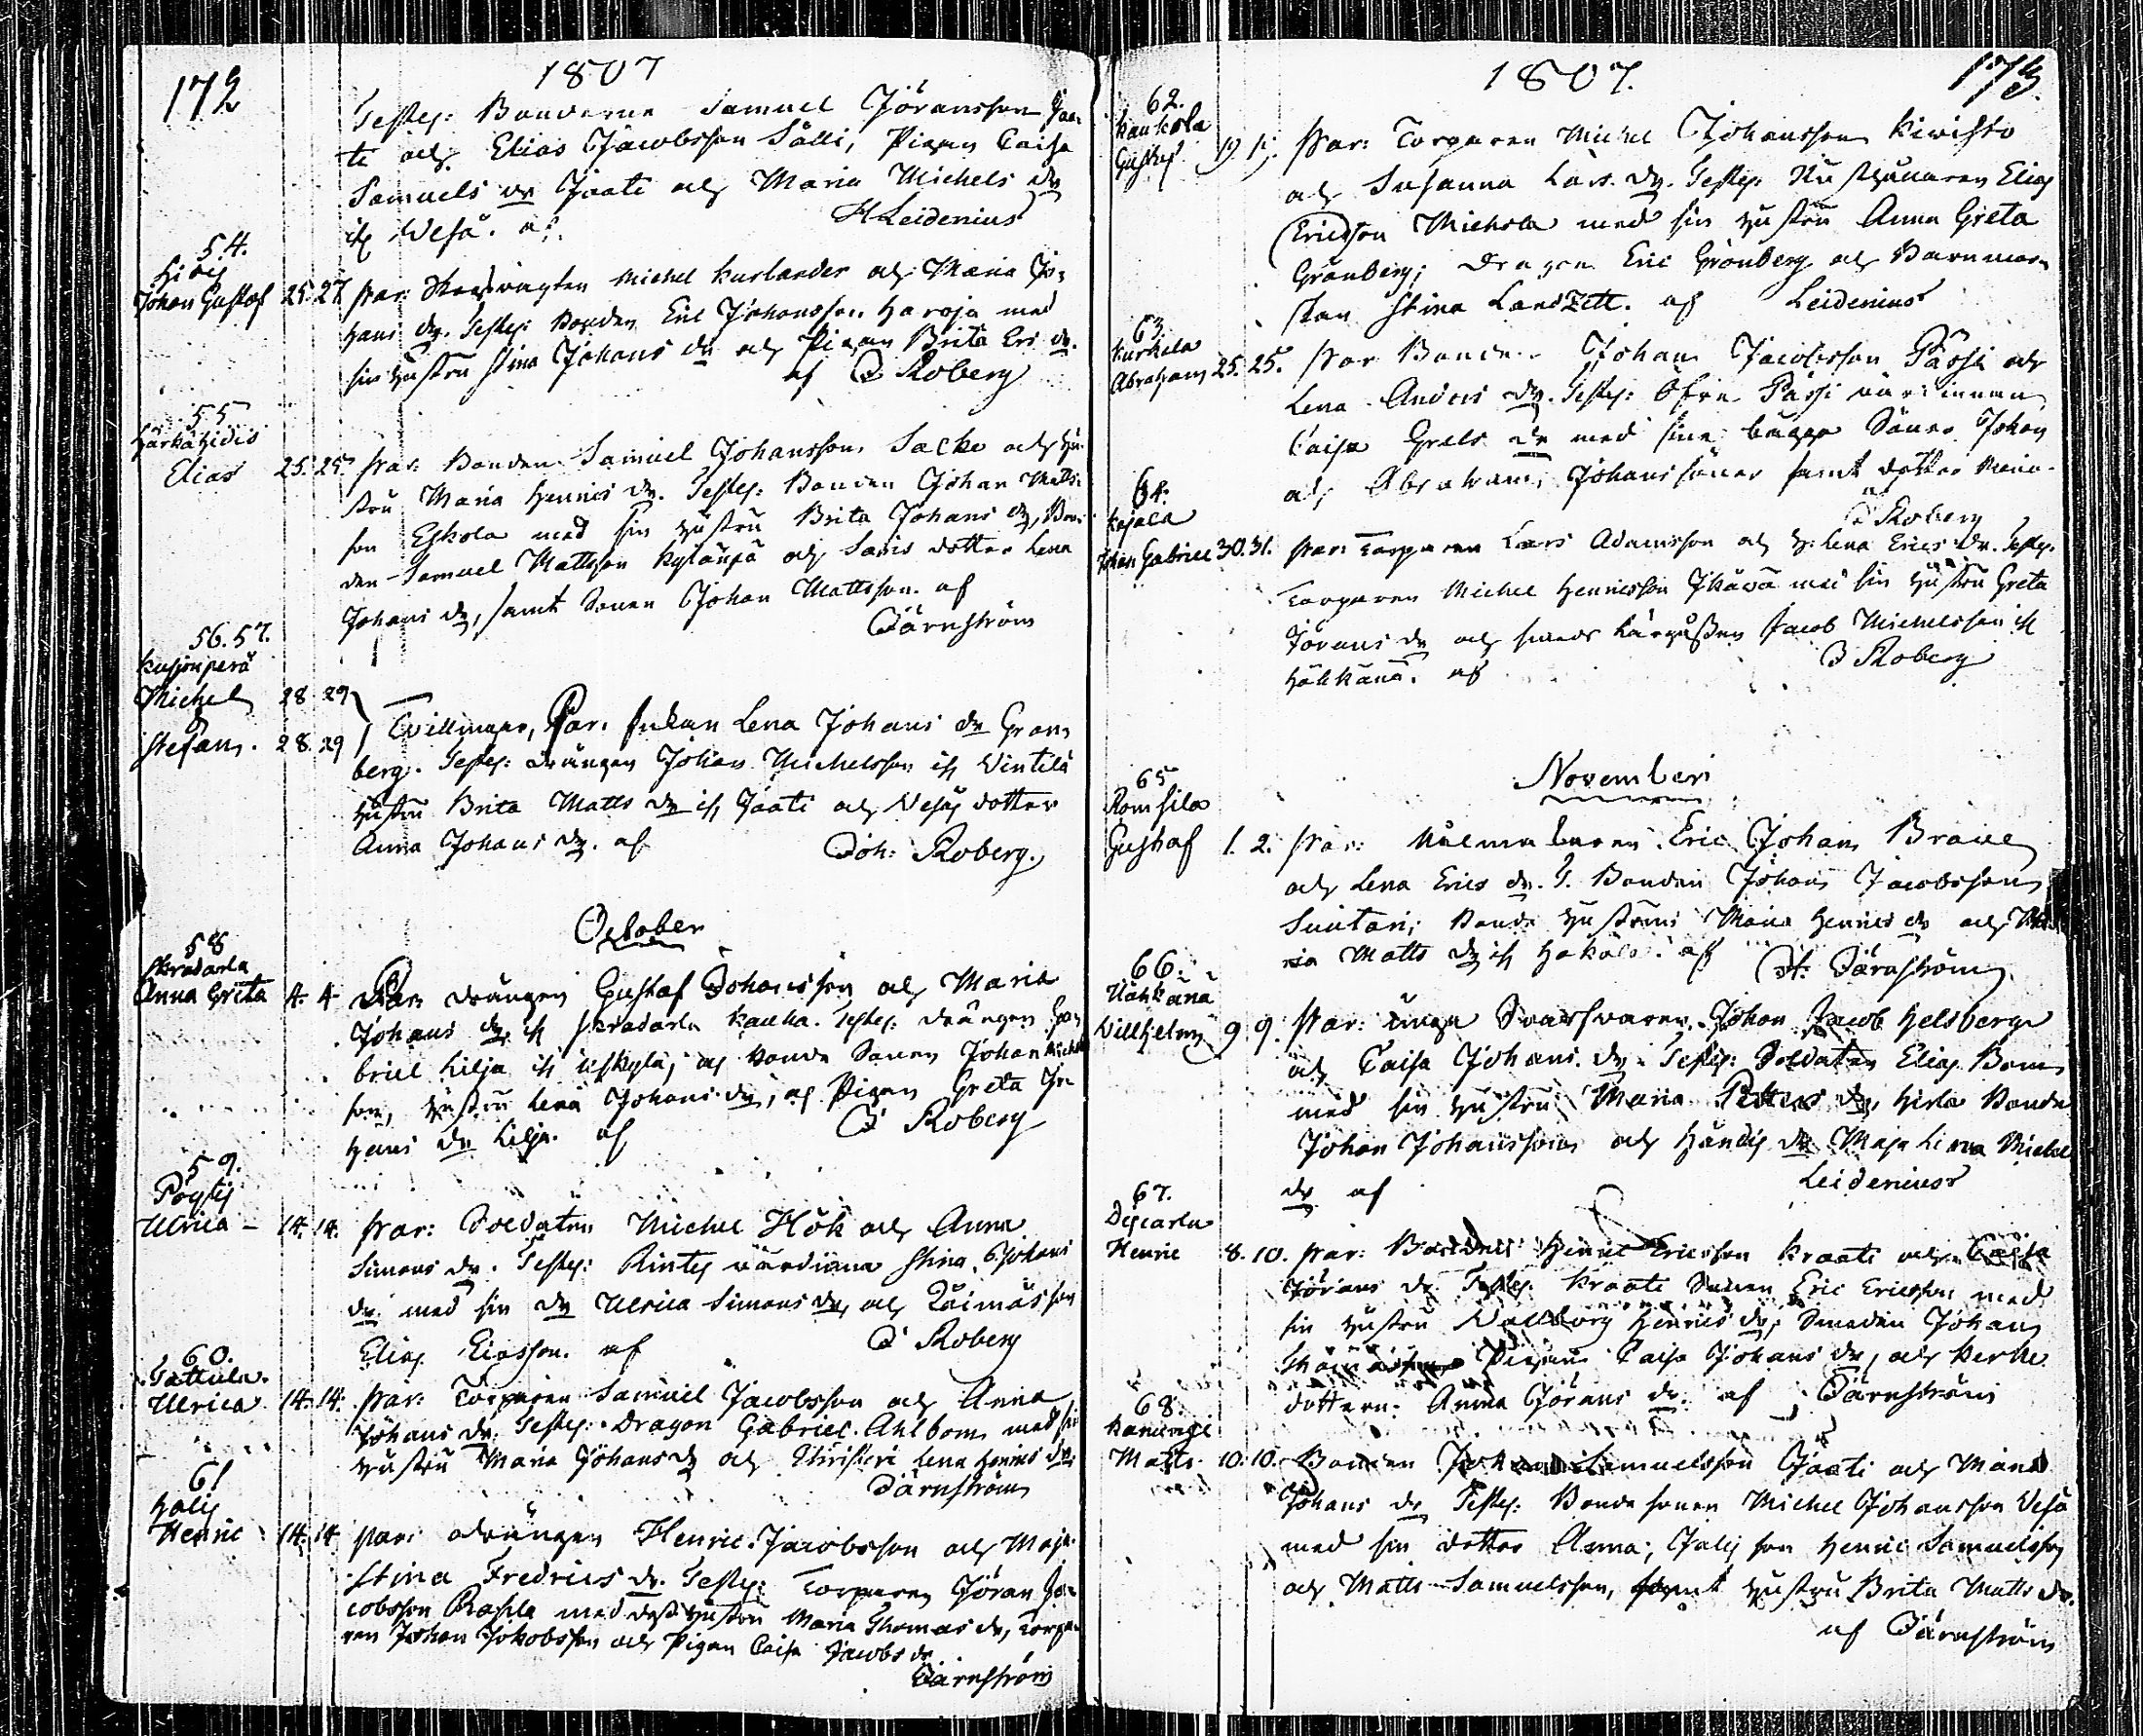 172
1807
Testes: Bonderne Samuel Jöransson Jaa-
ti och Elias Jacobsson Sälli, Pigan Caisa
Samuels dr Jaati och Maria Michels dr
ifr Wesa. af H Leidenius
54.
Johan Gustaf 25. 27. Par: Michel Kurlander och Maria Jo-
hans dr. Testes: Bonden Eric Johansson Haroja med
sin hustru Stina Johans dr och Pigan Brita Ers dr.
af J Roberg
55
Härkähidis
Elias 25. 25. Par: Bonden Samuel Johansson Sacko och hu-
stru Maria Henrics dr. Testes: Bonden Johan Matts-
son Eskola med sin hustru Brita Johans dr, Bon-
den Samuel Mattsson Kyläupä och dotter Lena
Johans dr, samt Sonen Johan Mattsson. af
Därnström
56. 57.
Kusjonperä
Michel 28 29
Stefan. 28. 29 Tvillingar, Par: Lena Johans dr Gran-
berg. Testes: drängen Johan Michelsson ifr Vintilä
hustru Brita Matts dr ifr Jaati och dotter
Anna Johans dr. af Joh: Roberg.
October
58
Skradarla
Anna Greta 4. 4 Par: drängen Gustaf Johansson och Maria
Johans dr ifr Skradarla Testes: drängen Ga-
briel Lilja ifr och bonde Sonen Johan Michels
son, hustru Lena Johans dr, och Pigan Greta Jo-
hans dr Lilja. af J Roberg
59.
Pöytis
Ulrica 14. 14. Par: Soldaten Michel Hök och Anna
Simons dr. Testes: värdinna Stina Johans
dr med sin dr Ulrica Simons dr, och
Elias Eliasson. af J Roberg
60.
Tattula.
Ulrica 14. 14. Par: Torparen Samuel Jacobsson och Anna
Johans dr. Testes: Dragon Gabriel Ahlbom med sin
hustru Maria Johans dr och Lena Henrics dr
Därnström
61
Halis
Henric 14. 14 Par: drängen Henric Jacobsson och Maja
Stina Fredrics dr. Testes: Torparen Jöran Ja-
cobsson Rahla med dess hustru Maria Thomas dr, Torpa-
ren Johan Jakobsson och Pigan Caisa Jacobs dr
Därnström
1807.
173.
62.
Kaukola
Gustaf 19. 19. Par: Torparen Michel Johansson Kiwisto
och Susanna Lars dr. Testes: Elias
Ericsson Michola med sin hustru Anna Greta
Grönberg; Dragon Eric Grönberg och Barnmor-
skan Stina Landzett. af Leidenius
63.
Kurkela
Abraham 25. 25. Par Bonden Johan Jacobsson Passi och
Lena Anders dr. Testes: Öfre Passi värdinnan
Caisa Grels dr med sine bägge Söner Johan
och Abraham Johanssöner samt dotter Maria
J Roberg
64.
Kojala
Johan Gabriel 30. 31. Par: Torparen Lars Adamsson och h. Lena Erics dr. Testes.
Torparen Michel Henricsson med sin hustru Greta
Jörans dr och Jacob Michelsson ifr
Hähkänä. af J Roberg
November
65
Romsila
Gustaf 1. 2. Par: Eric Johan Brave
och Lena Erics dr. T. Bonden Johan Jacobsson
Suutari; Bonde hustrun Maria Henrics dr och Ma-
ria Matts dr ifr Hakala. af H. Därnström
66.
Hähkänä
Willhelm 9 9. Par: unga Johan Jacob Helsberg
och Caisa Johans dr. Testes: Soldaten Elias Bom
med sin hustru Maria Petters dr, Hirla Bonde
Johan Johansson och Händis dr Maja Lena Michels
dr af Leidenius
67.
Discarla
Henric 8. 10. Par: Bonden Henric Ericsson Kraati och Caisa
Jörans dr Testes: Kraati Sonen Eric Ericsson med
sin hustru Wallborg Henrics dr, Smeden Johan
Pigan Caisa Johans dr, och
dottern Anna Jörans dr. af Därnström
68.
Matts 10. 10. Bonden Johan Samuelsson Jaati och Maria
Johans dr Testes: Bonde sonen Michel Johansson Vesa
med sin dotter Anna; Jalis son Henric Samuelsson
och Matts Samuelsson, samt hustru Brita Matts dr.
af Därnström